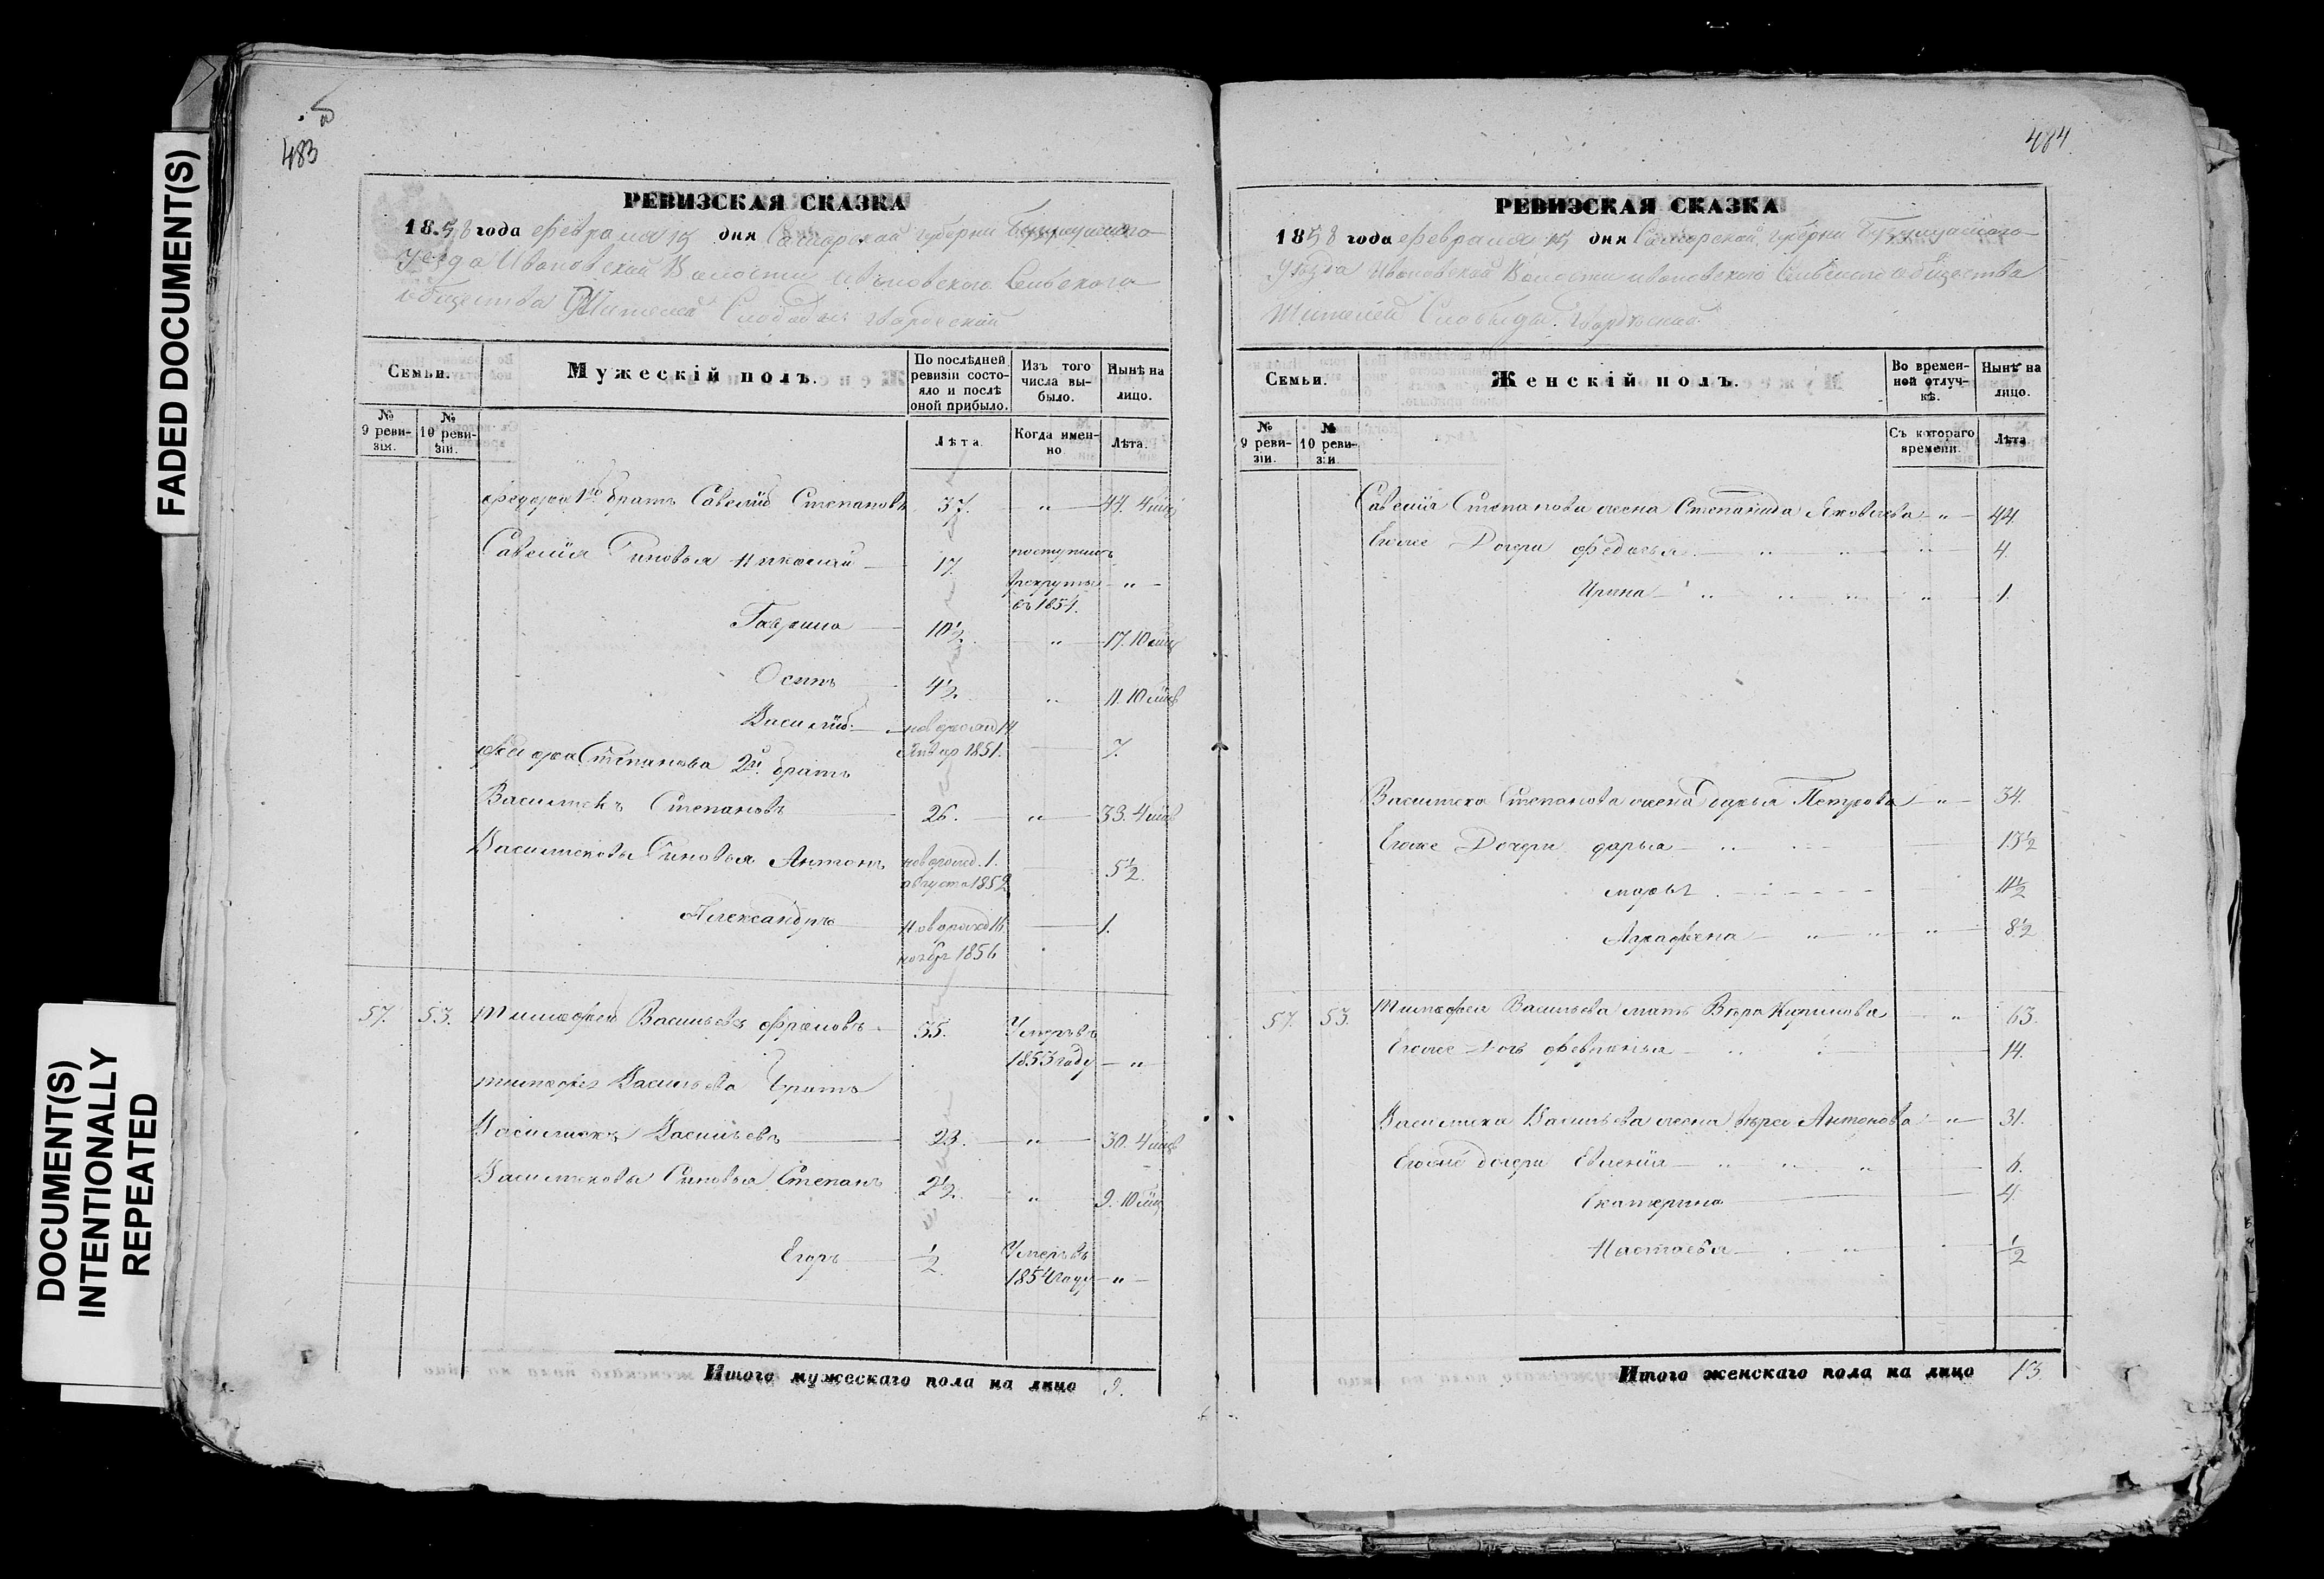 FADED DOCUMENT(S)
DOCUMENT(S)
INTENTIONALLY
REPEATED
483
РЕВИЗСКАЯ СКАЗКА
1858 года февраля 15 дня Самарской губернии Бузулуцкаго
уезда Ивановской Волости Ивановского Сельского
общества Жителей Слободы
Семьи.
Мужескій полъ.
По послѣдней
ревизіи состо-
яло и послѣ
оной прибыло.
Изъ того
числа вы-
было.
Нынѣ на
лицо.
№
9 реви-
зіи.
№
10 реви-
зіи.
Лѣта.
Когда имен-
но.
Лѣта.
Федора 1й братъ Савелій Степановъ 37. " 44. 4 мѣс
Савелія Синовья Николай 17. поступилъ
в рекруты "
въ 1854.
Гаврила 10½ " 17. 10 мѣс
Осипъ 4½ " 11. 10 мѣс
Василій новорожд 14
Январ 1851. 7.
Федора Степанова 2й братъ
Степановъ 26. " 33. 4 мѣс
Синовья Антонъ новорожд. 1.
августа 1852 5½
Александръ новорожд 16
ноябр 1856 1.
57. 53. Тимофей Васильевъ 35. Умеръ въ
1853 году "
Тимофея Васильева братъ
Васильевъ 23. " 30. 4 мѣс
Синовья Степанъ 2½ " 9. 10 мѣс
Егоръ ½ Умеръ въ
1854 году "
Итого мужескаго пола на лицо 9.
484
РЕВИЗСКАЯ СКАЗКА
1858 года февраля 15 дня Самарской губернии Бузулуцкаго
уезда Ивановской Волости Ивановского Сельского общества
Жителей Слободы
Семьи.
Женскій полъ.
Во времен-
ной отлуч-
кѣ.
Нынѣ на
лицо.
№
9 реви-
зіи.
№
10 реви-
зіи.
Съ котораго
времени.
Лѣта
Савелія Степанова жена Степанида Яковлева " 44.
Егоже Дочери Федосья " " " 4.
Ирина " " " " 1.
Степанова жена Дарья Петрова " 34.
Егоже Дочери Дарья " 13½
Марья 11½
Аграфена " " " 8½
57. 53. Тимофея Васильева мать Вера Кирилова " 63.
Егоже Дочь Февронья " 14.
Васильева жена Вера Антонова " 31.
Егоже дочери Евгенія " " " 6.
Екатерина 4.
Настасья " ½
Итого женскаго пола на лицо 13.